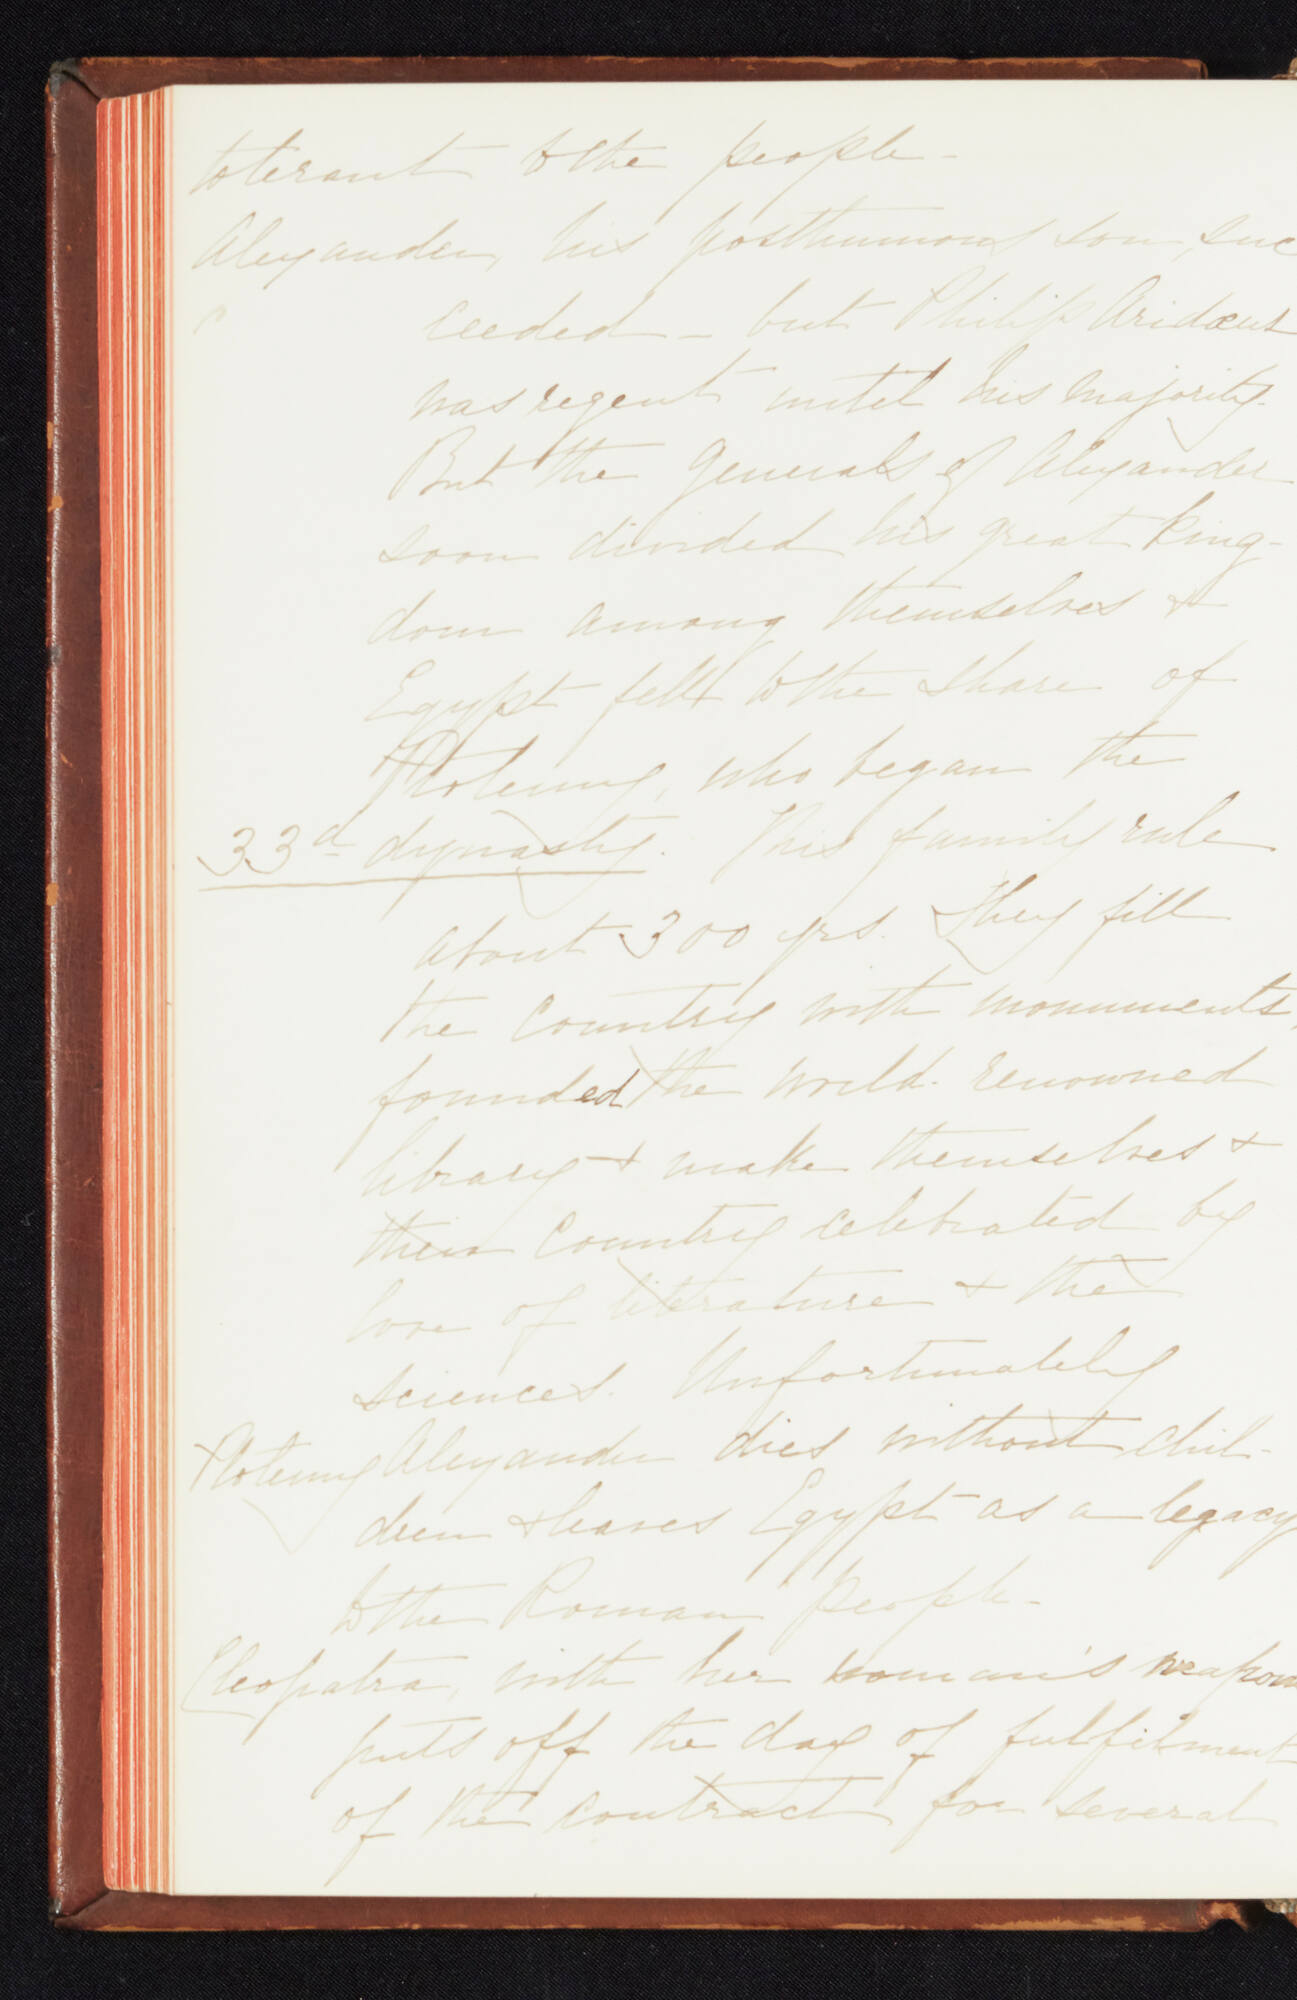 tolerant to the people -
Alexander, his posthumous son, suc
ceeded - but Philip Aridæus
was regent until his majority.
But the Generals of Alexander
soon divided his great king-
dom among themselves &
Egypt fell to the share of
Ptolemy, who began the
33d dynasty. This family rule
about 300 yrs. They fill
the country with monuments,
founded the world-renowned
library & make themselves &
their country celebrated by
love of literature & the
sciences. Unfortunately
Ptolemy Alexander dies without chil-
dren & leaves Egypt as a legacy
to the Roman people -
Cleopatra, with her woman's weapons
puts off the day of fulfilment
of the contract for several